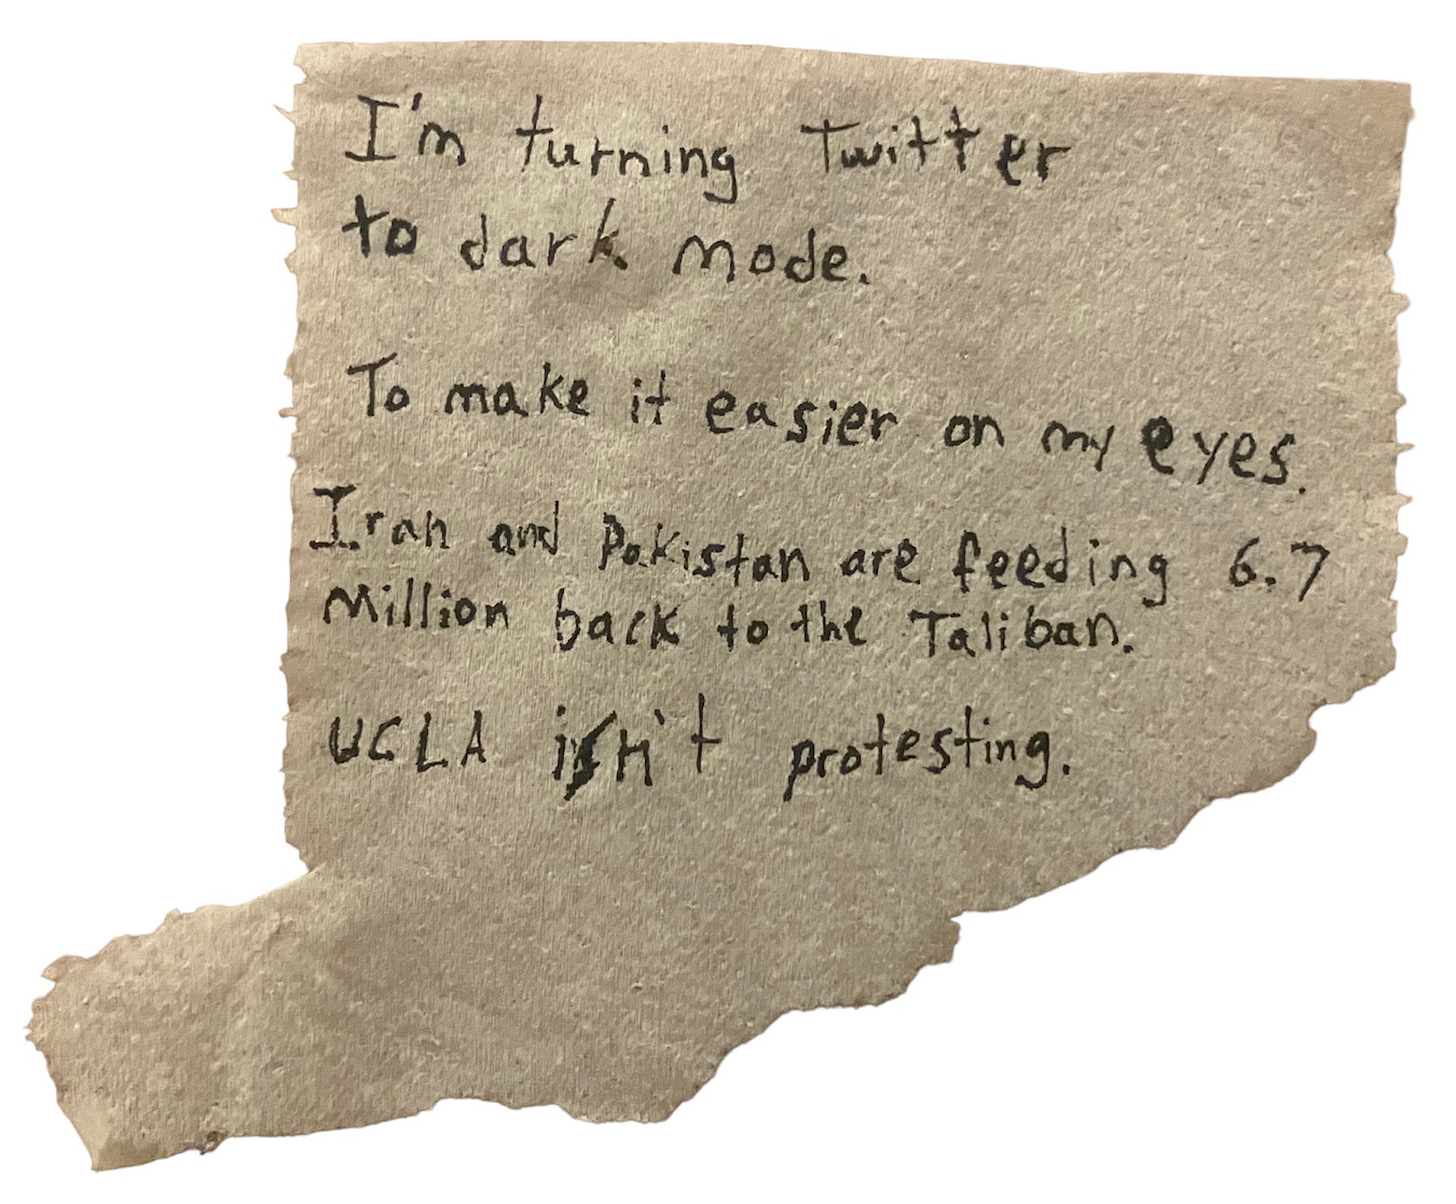 I'm turning Twitter
to dark mode.
To make it easier on my eyes.
Iran and Pakistan are feeding 6.7
Million back to the Taliban.
UCLA isn't protesting.